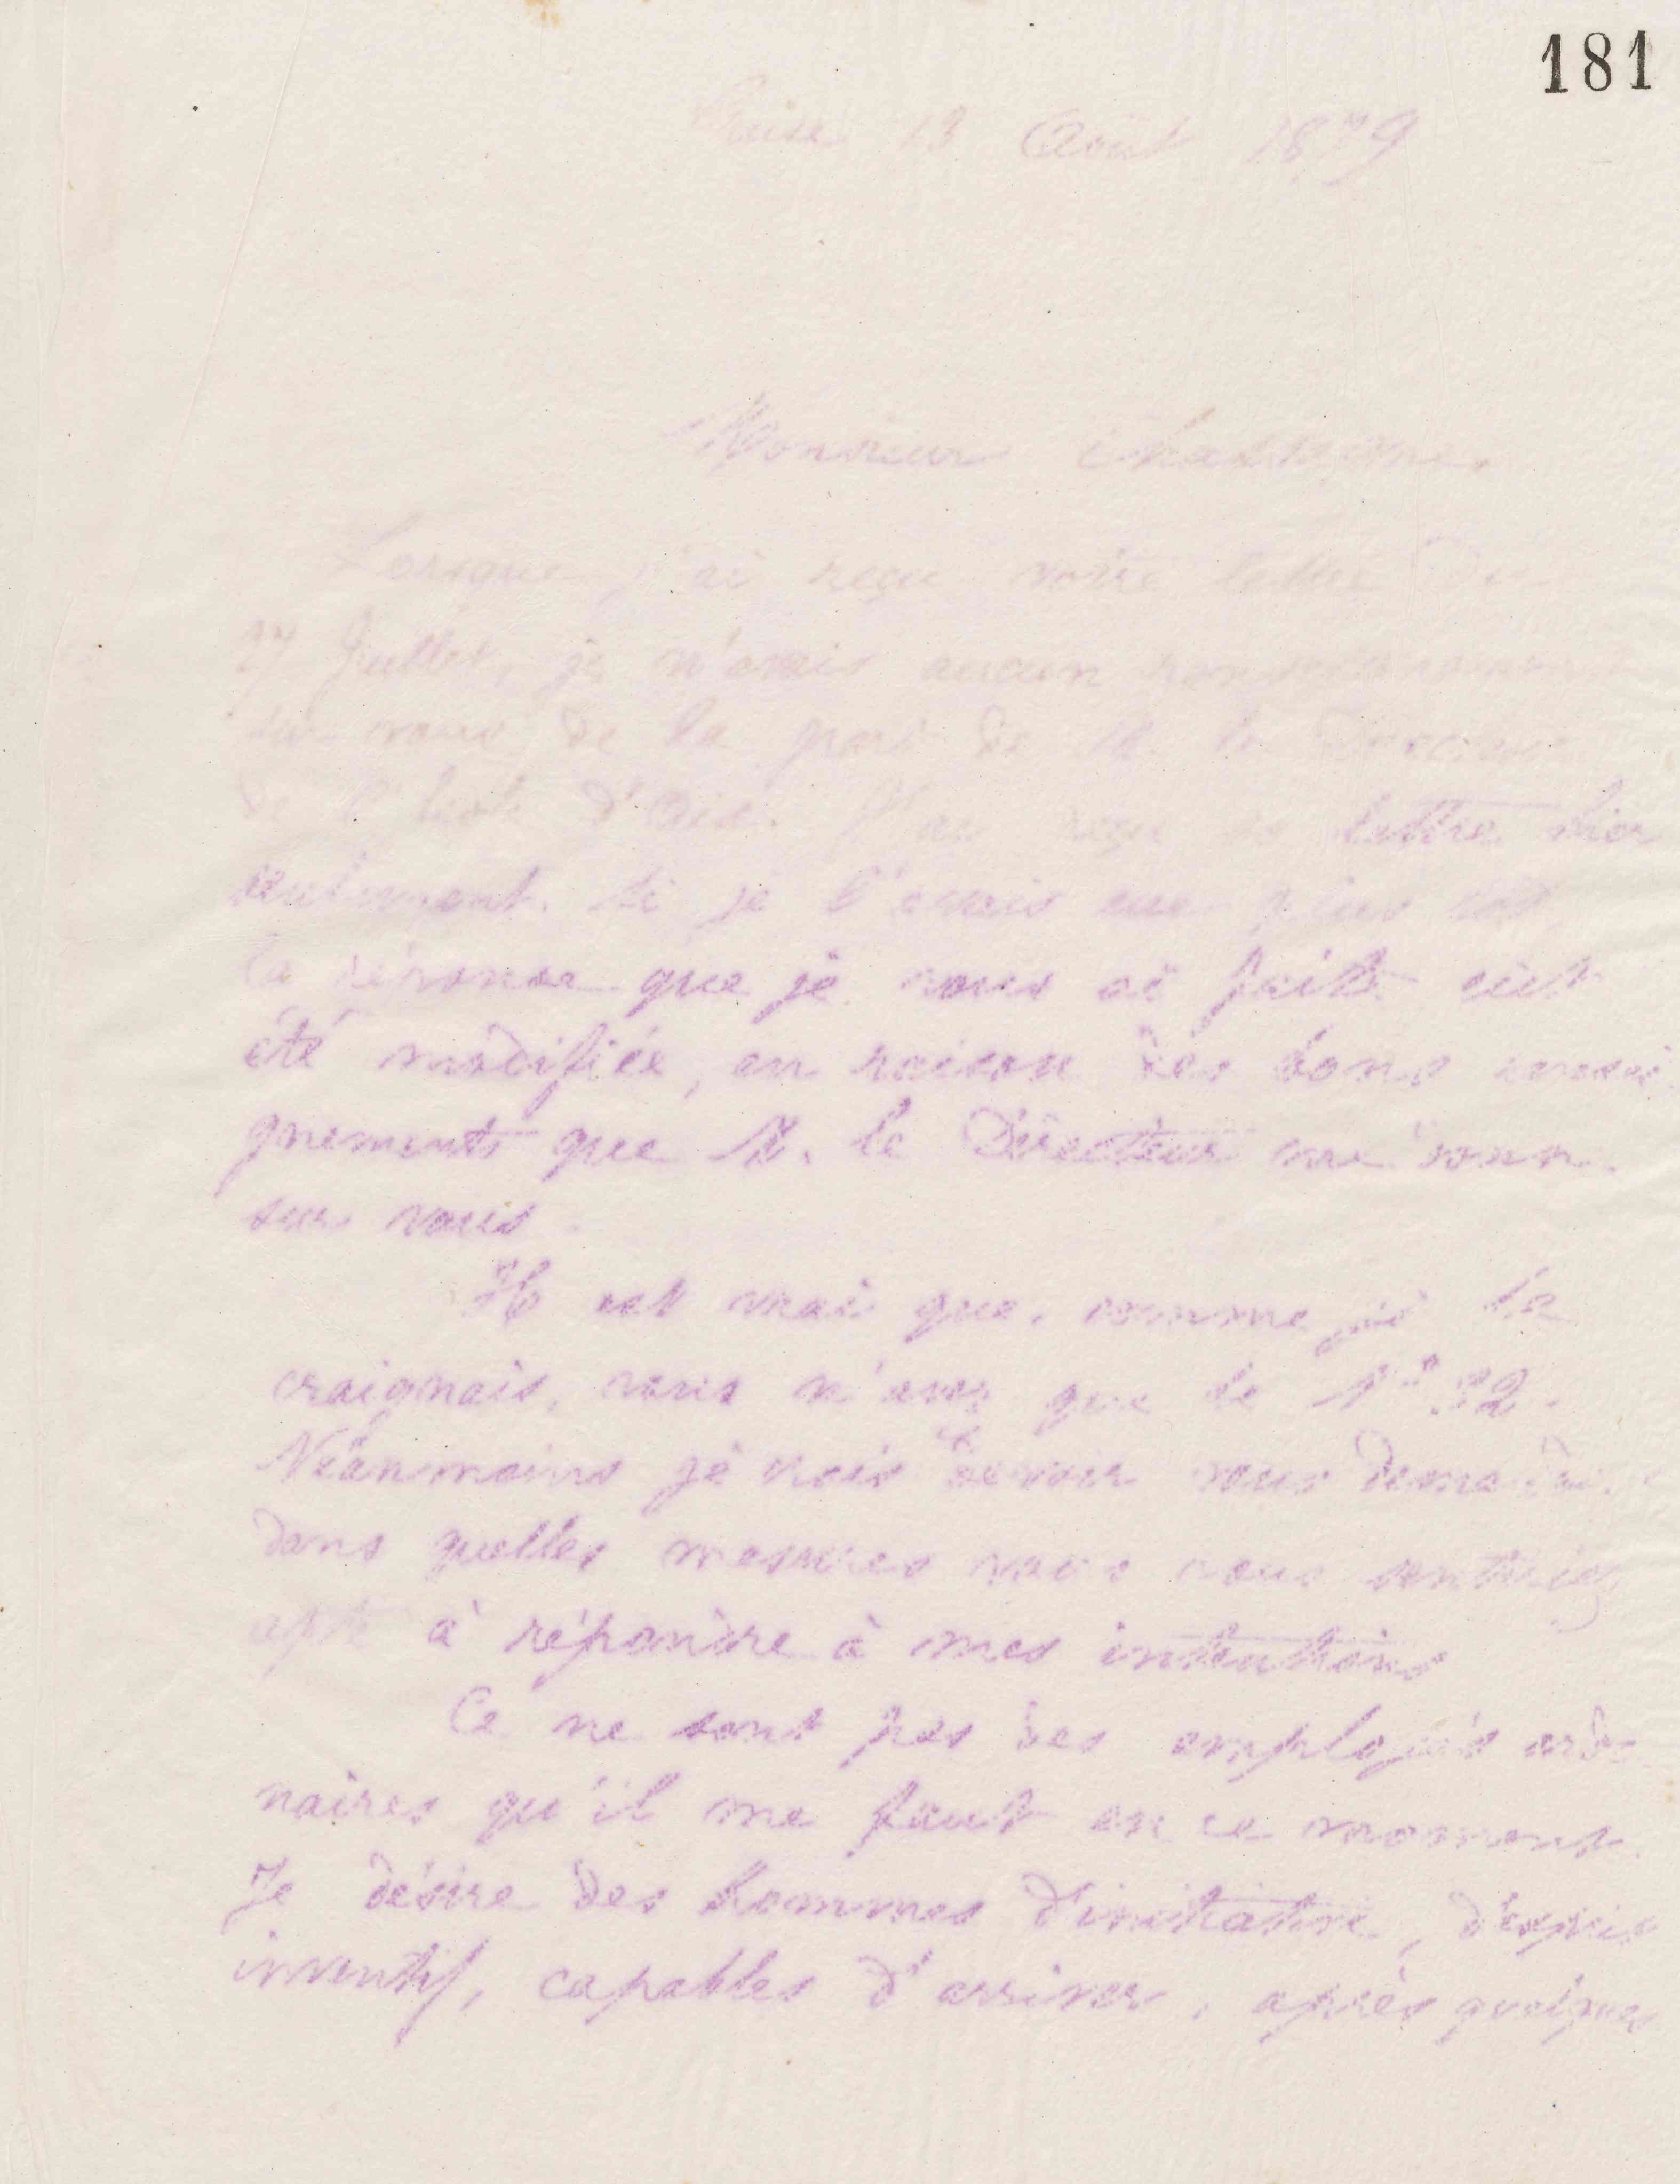 181
Guise 13 Août 1879
Monsieur
Lorsque j'ai reçu votre lettre du
27 Juillet, je n'avais aucun
sur vous de la part de M. le Directeur
de l'école d'Aix. J'ai reçu sa lettre hier
seulement. Si je l'avais eue plus tôt
la réponse que je vous ai faite eût
été modifiée, en raison des bons rensei
gnements que M. le Directeur me donne
sur vous
Il est vrai que, comme je le
craignais, vous n'avez que le Nº 32.
Néanmoins je crois devoir vous demander
dans quelles mesures vous vous sentiriez
apte à répondre à mes intentions
Ce ne sont pas des employés ordi
naires qu'il me faut en ce moment.
Je désire des hommes d'initiative, d'esprit
inventif, capables d'arriver, après quelques